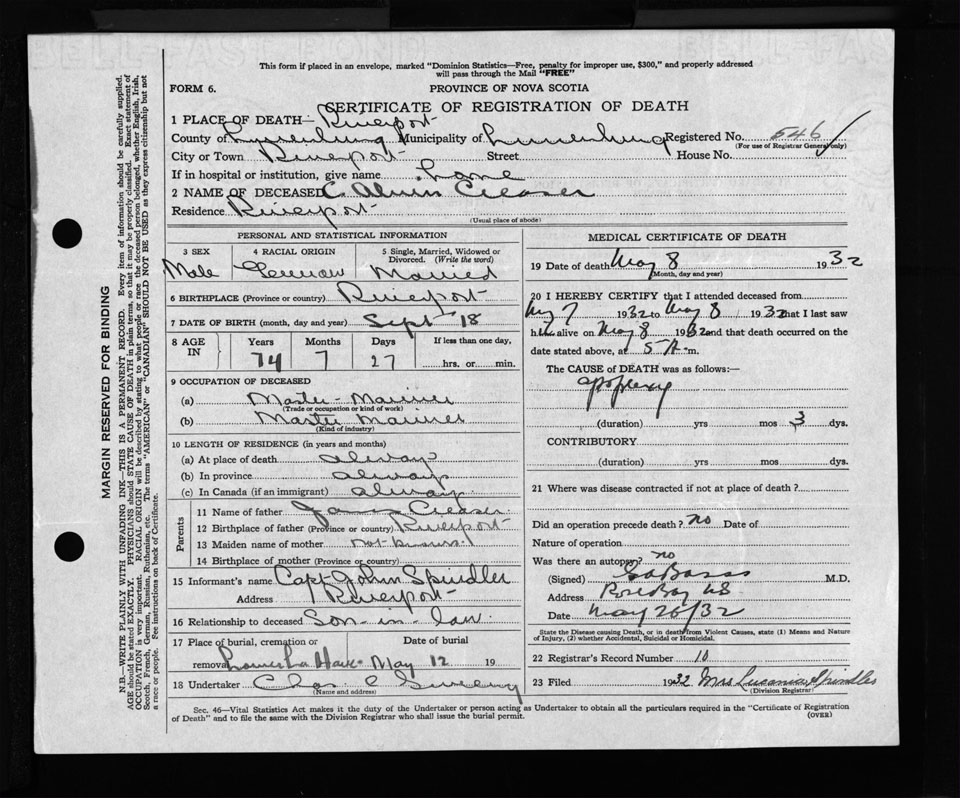 BELL-FAST BOND
This form if placed in an envelope, marked "Dominion Statistics—Free, penalty for improper use, $300," and properly addressed
will pass through the Mail "FREE"
FORM 6.
PROVINCE OF NOVA SCOTIA
CERTIFICATE OF REGISTRATION OF DEATH
1 PLACE OF DEATH— Riverport
County of Lunenburg Municipality of Lunenburg Registered No. 546
(For use of Registrar General only)
City or Town Riverport Street House No.
If in hospital or institution, give name home
2 NAME OF DECEASED C. Alvin Creaser
Residence Riverport
(Usual place of abode)
PERSONAL AND STATISTICAL INFORMATION
3 SEX
Male
4 RACIAL ORIGIN
German
5 Single, Married, Widowed or
Divorced. (Write the word)
Married
6 BIRTHPLACE (Province or country) Riverport
7 DATE OF BIRTH (month, day and year) Sept 18
8 AGE
IN
Years Months Days If less than one day,
74 7 27 hrs. or min.
9 OCCUPATION OF DECEASED
(a) Master-Mariner
(Trade or occupation or kind of work)
(b) Master Mariner
(Kind of industry)
10 LENGTH OF RESIDENCE (in years and months)
(a) At place of death always
(b) In province always
(c) In Canada (if an immigrant) always
Parents
11 Name of father Creaser
12 Birthplace of father (Province or country) Riverport
13 Maiden name of mother not known
14 Birthplace of mother (Province or country)
15 Informant's name Capt John Spindler
Address Riverport
16 Relationship to deceased Son-in-law
17 Place of burial, cremation or
removal La Have
Date of burial
May 12 19
18 Undertaker Chas C Sweeny
(Name and address)
MEDICAL CERTIFICATE OF DEATH
19 Date of death May 8 1932
(Month, day and year)
20 I HEREBY CERTIFY that I attended deceased from
May 7 1932 to May 8 1932 that I last saw
him alive on May 8 1932 and that death occurred on the
date stated above, at 5 A m.
The CAUSE of DEATH was as follows:—
apoplexy
(duration) yrs mos 3 dys.
CONTRIBUTORY
(duration) yrs mos dys.
21 Where was disease contracted if not at place of death?
Did an operation precede death? no Date of
Nature of operation
Was there an autopsy? no
(Signed) M.D.
Address Rose Bay NS
Date May 26/32
State the Disease causing Death, or in death from Violent Causes, state (1) Means and Nature
of Injury, (2) whether Accidental, Suicidal or Homicidal.
22 Registrar's Record Number 10
23 Filed 1932 Mrs Spindler
(Division Registrar)
Sec. 46—Vital Statistics Act makes it the duty of the Undertaker or person acting as Undertaker to obtain all the particulars required in the "Certificate of Registration
of Death" and to file the same with the Division Registrar who shall issue the burial permit.
(OVER)
MARGIN RESERVED FOR BINDING
N.B.—WRITE PLAINLY WITH UNFADING INK—THIS IS A PERMANENT RECORD. Every item of information should be carefully supplied.
AGE should be stated EXACTLY. PHYSICIANS should STATE CAUSE OF DEATH in plain terms, so that it may be properly classified. Exact statement of
OCCUPATION is very important. RACIAL ORIGIN will be described by stating to what people or race the deceased person belonged, whether English, Irish,
Scotch, French, German, Russian, Ruthenian, etc. The terms "AMERICAN" or "CANADIAN" SHOULD NOT BE USED as they express citizenship but not
a race or people. See instructions on back of Certificate.